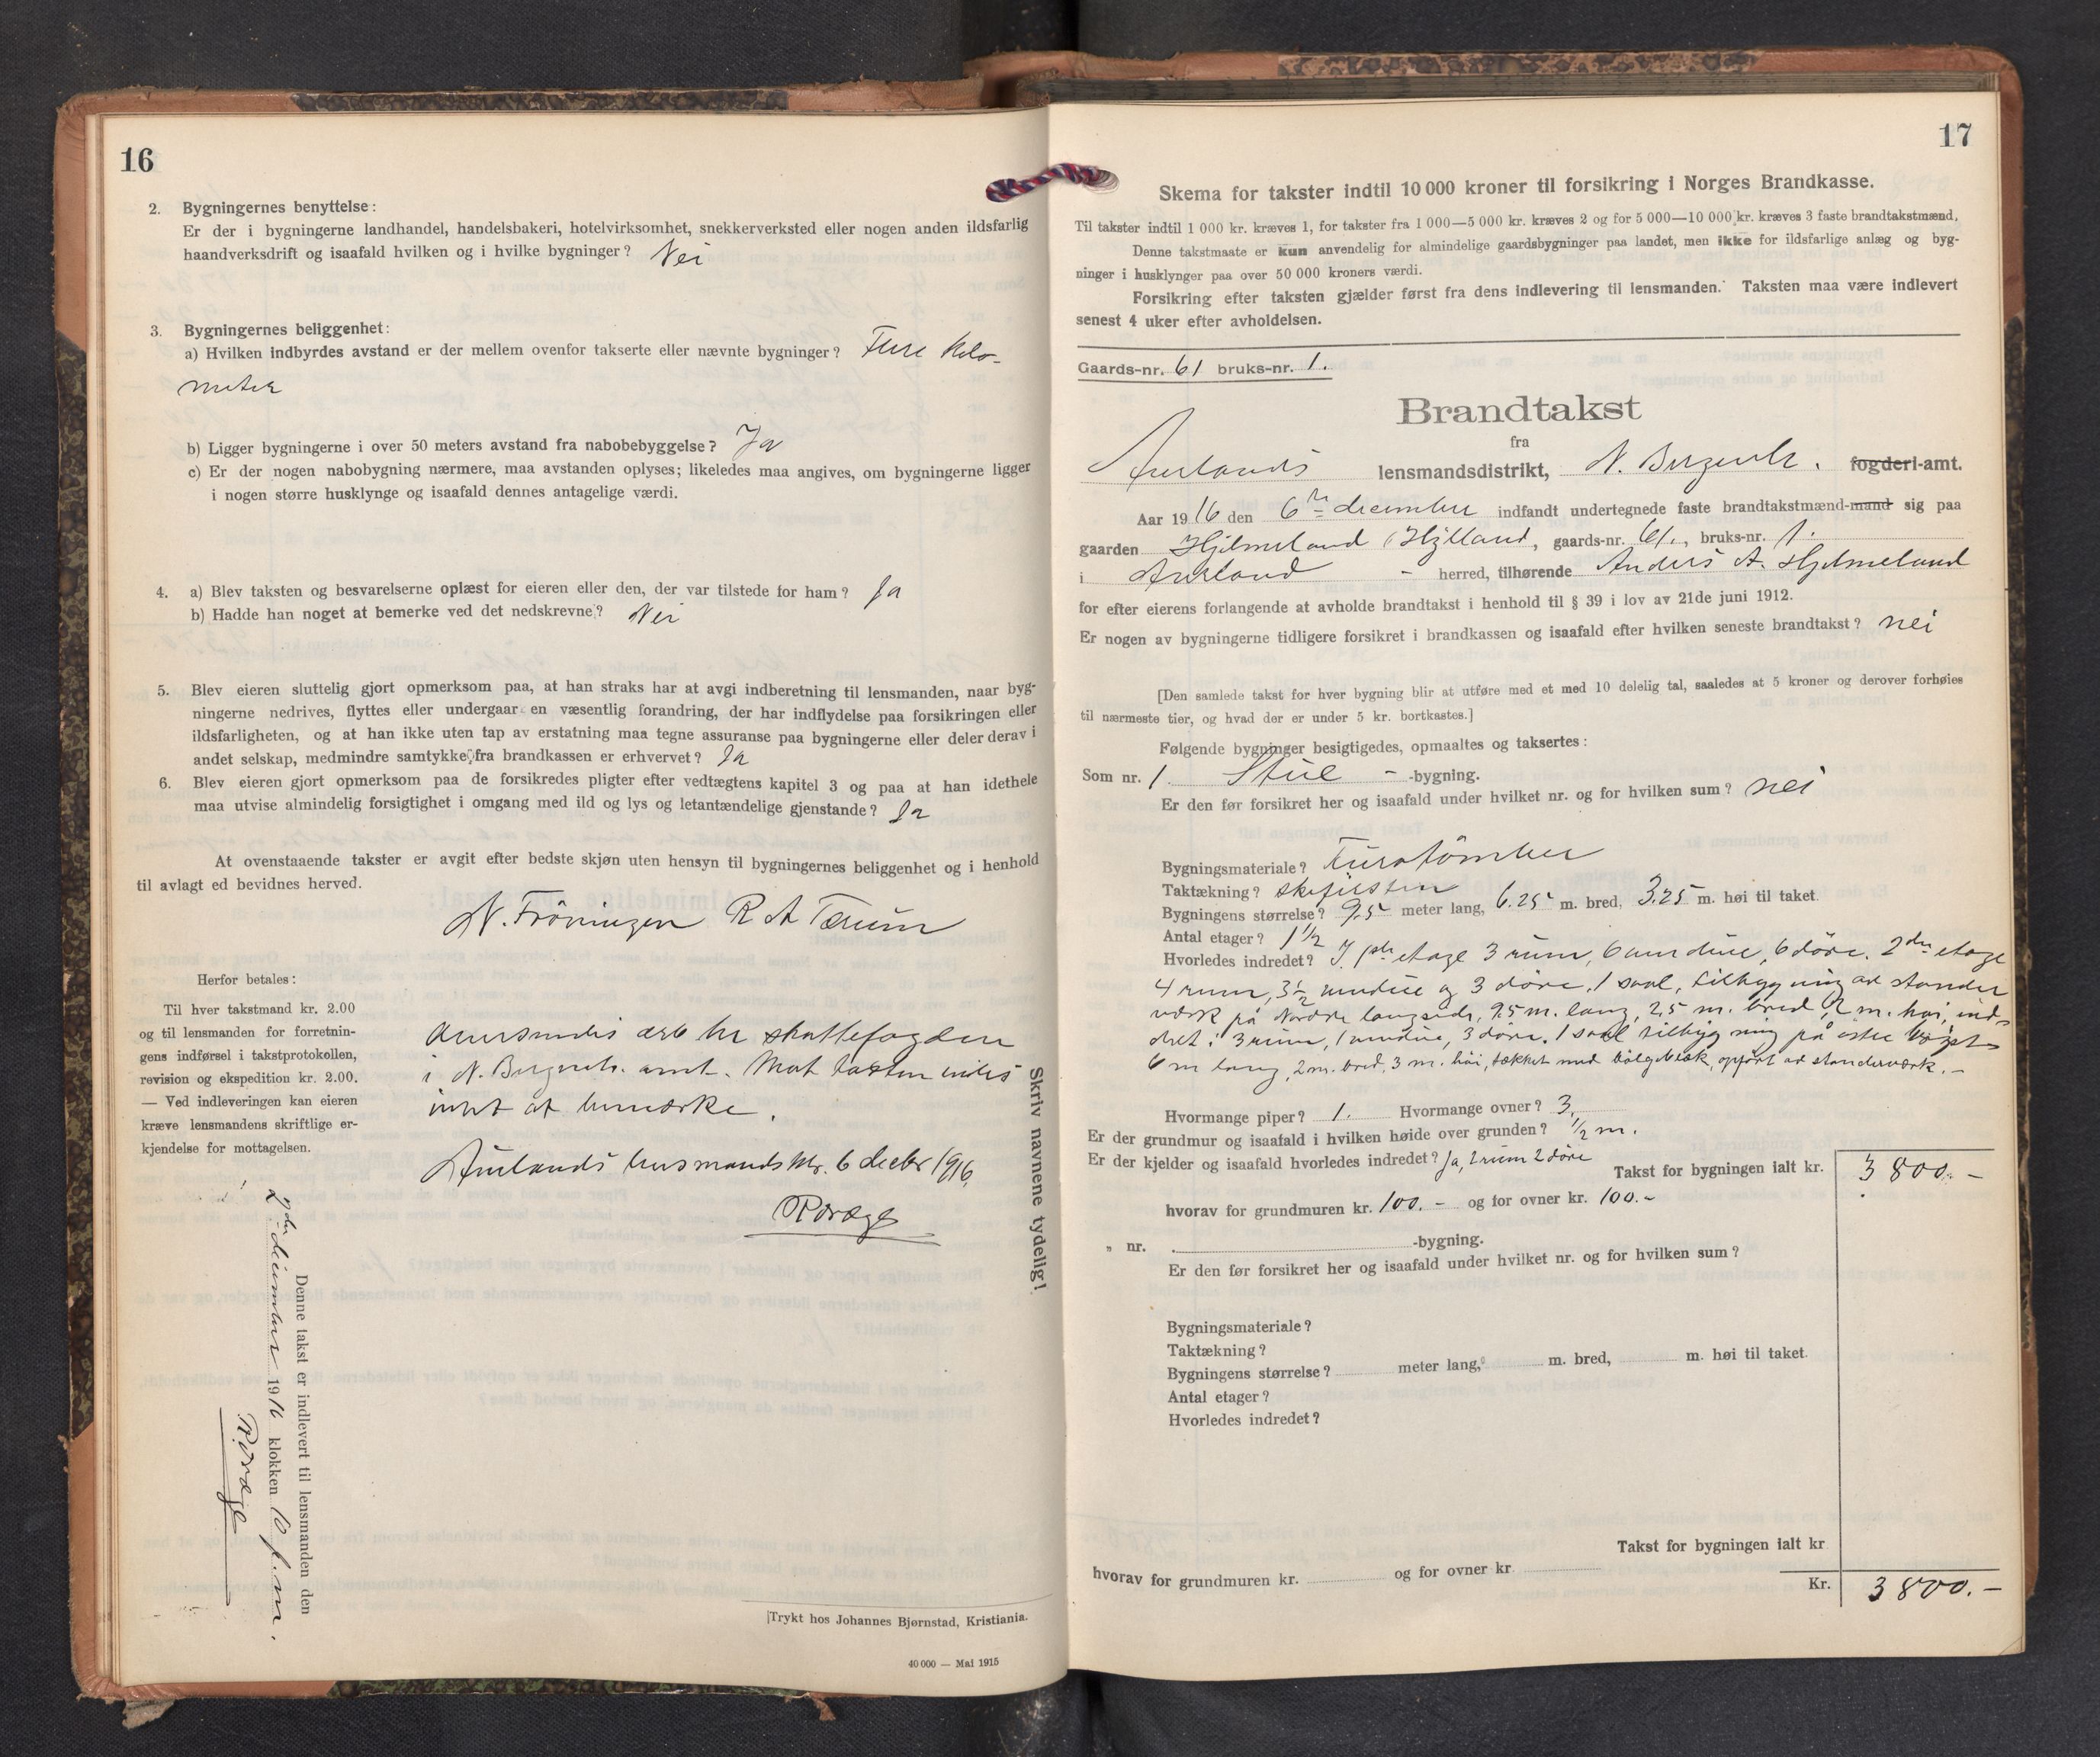 16
2. Bygningernes benyttelse:
Er der i bygningerne landhandel, handelsbakeri, hotelvirksomhet, snekkerverksted eller nogen anden ildsfarlig
haandverksdrift og isaafald hvilken og i hvilke bygninger? Nei
3. Bygningernes beliggenhet:
a) Hvilken indbyrdes avstand er der mellem ovenfor takserte eller nævnte bygninger? Flere kilo-
meter
b) Ligger bygningerne i over 50 meters avstand fra nabobebyggelse? Ja
c) Er der nogen nabobygning nærmere, maa avstanden oplyses; likeledes maa angives, om bygningerne ligger
i nogen større husklynge og isaafald dennes antagelige værdi.
4. a) Blev taksten og besvarelserne oplæst for eieren eller den, der var tilstede for ham? Ja
b) Hadde han noget at bemerke ved det nedskrevne? Nei
5. Blev eieren sluttelig gjort opmerksom paa, at han straks har at avgi indberetning til lensmanden, naar byg-
ningerne nedrives, flyttes eller undergaar en væsentlig forandring, der har indflydelse paa forsikringen eller
ildsfarligheten, og at han ikke uten tap av erstatning maa tegne assuranse paa bygningerne eller deler derav i
andet selskap, medmindre samtykke fra brandkassen er erhvervet? Ja
6. Blev eieren gjort opmerksom paa de forsikredes pligter efter vedtægtens kapitel 3 og paa at han idethele
maa utvise almindelig forsigtighet i omgang med ild og lys og letantændelige gjenstande? Ja
At ovenstaaende takster er avgit efter bedste skjøn uten hensyn til bygningernes beliggenhet og i henhold
til avlagt ed bevidnes herved.
N. Fröningen R A Terum
Herfor betales:
Til hver takstmand kr. 2.00
og til lensmanden for forretnin-
gens indførsel i takstprotokollen,
revision og ekspedition kr. 2.00.
— Ved indleveringen kan eieren
kræve lensmandens skriftlige er-
kjendelse for mottagelsen.
Oversendes hr skattefogden
i N. Bergenh. amt. Mot taksten vides
intet at bemærke.
Aurlands lensmandsktr. 6 decbr 1916.
Skriv navnene tydelig!
Denne takst er indlevert til lensmanden den
december 1916 klokken 10 f.m.
Trykt hos Johannes Bjørnstad, Kristiania.
40 000 — Mai 1915
17
Skema for takster indtil 10 000 kroner til forsikring i Norges Brandkasse.
Til takster indtil 1 000 kr. kræves 1, for takster fra 1 000—5 000 kr. kræves 2 og for 5 000—10 000 kr. kræves 3 faste brandtakstmænd.
Denne takstmaate er kun anvendelig for almindelige gaardsbygninger paa landet, men ikke for ildsfarlige anlæg og byg-
ninger i husklynger paa over 50 000 kroners værdi.
Forsikring efter taksten gjælder først fra dens indlevering til lensmanden. Taksten maa være indlevert
senest 4 uker efter avholdelsen.
Gaards-nr. 61 bruks-nr. 1.
Brandtakst
fra
Aurlands lensmandsdistrikt, N. Bergenh. fogderi-amt.
Aar 1916 den 6te december indfandt undertegnede faste brandtakstmænd-mand sig paa
gaarden Hjelmeland (Hylland, gaards-nr. 61., bruks-nr. 1.
i Aurland - herred, tilhørende Anders A. Hjelmeland
for efter eierens forlangende at avholde brandtakst i henhold til § 39 i lov av 21de juni 1912.
Er nogen av bygningerne tidligere forsikret i brandkassen og isaafald efter hvilken seneste brandtakst? nei
[Den samlede takst for hver bygning blir at utføre med et med 10 delelig tal, saaledes at 5 kroner og derover forhøies
til nærmeste tier, og hvad der er under 5 kr. bortkastes.]
Følgende bygninger besigtigedes, opmaaltes og taksertes:
Som nr. 1. Stue - -bygning.
Er den før forsikret her og isaafald under hvilket nr. og for hvilken sum? nei
Bygningsmateriale? Furotömmer
Taktækning? skifersten
Bygningens størrelse? 9.5 meter lang, 6.25 m. bred, 3.25 m. høi til taket.
Antal etager? 1 1/2
Hvorledes indredet? I 1ste etage 3 rum, 6 vinduer, 6 döre. 2den etage
4 rum, 3 1/2 vinduer og 3 döre. 1 saal, tilbygning av stander
værk på nordre langside, 9.5 m. lang, 2,5 m. bred, 2 m. høi, ind-
redet: 3 rum, 1 vindue, 3 döre. 1 saal tilbygning på østre
6 m lang, 2 m. bred, 3 m. høi, tækket med bölgeblæk, opfört av standerværk. -
Hvormange piper? 1. Hvormange ovner? 3.
Er der grundmur og isaafald i hvilken høide over grunden? 1/2 m.
Er der kjelder og isaafald hvorledes indredet? Ja, 2 rum 2 döre
Takst for bygningen ialt kr. 3 800. -
hvorav for grundmuren kr. 100. - og for ovner kr. 100. -
„ nr. -bygning.
Er den før forsikret her og isaafald under hvilket nr. og for hvilken sum?
Bygningsmateriale?
Taktækning?
Bygningens størrelse? meter lang, m. bred, m. høi til taket.
Antal etager?
Hvorledes indredet?
Takst for bygningen ialt kr
hvorav for grundmuren kr. og for ovner kr
Kr. 3 800. -